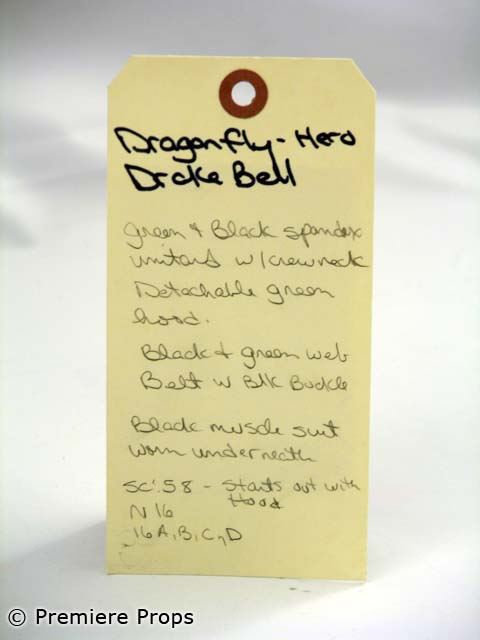 Dragonfly - Hero
Drake Bell
green & Black spandex
unitard w/crewneck
Detachable green
hood.
Black & green web
Belt w Blk Buckle
Black muscle suit
worn underneath
SC: 58 - Starts out with
Hood
N 16
16 A, B, C, D
© Premiere Props